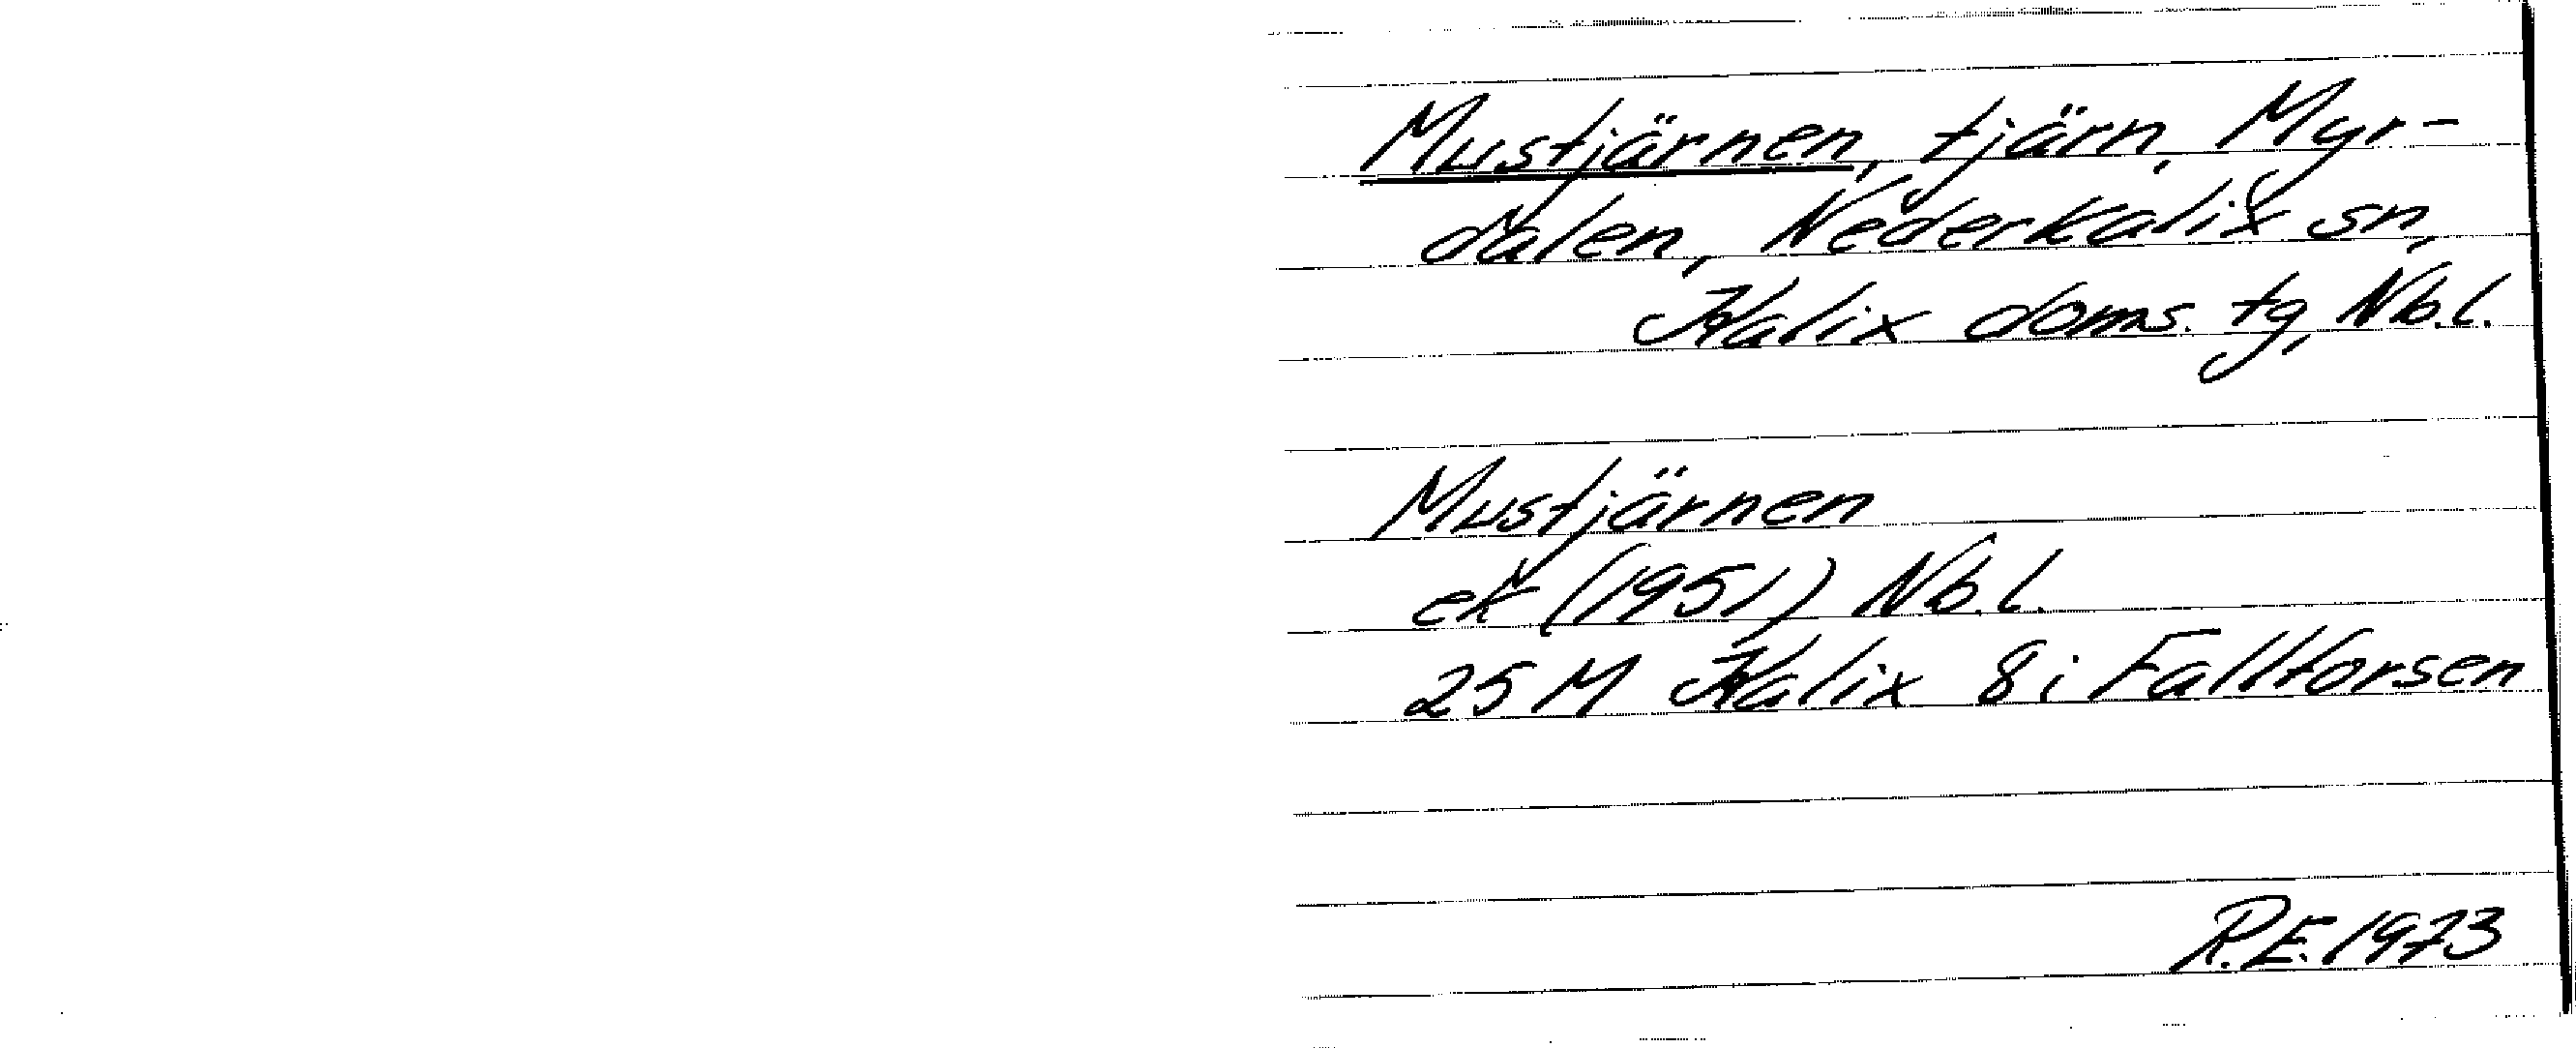 Mustjärnen, tjärn, Myr-
dalen, Nederkalix sn,
Kalix doms. tg, Nb.l.
Mustjärnen
ek (1951) Nb.l.
25 M Kalix 8i Fallforsen
R.E. 1973